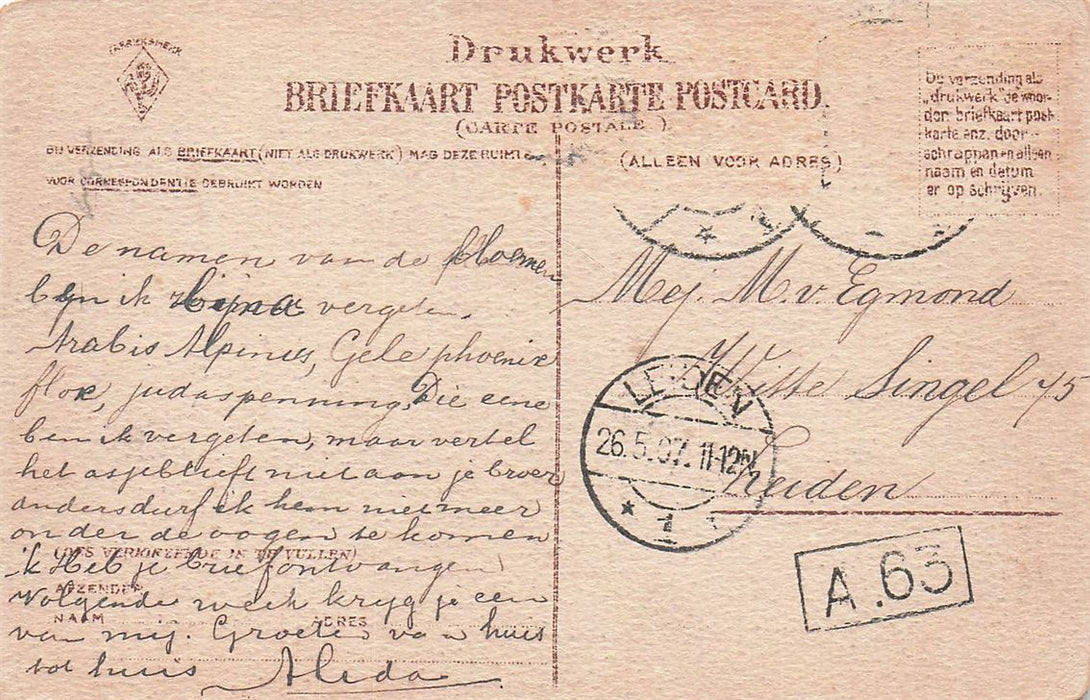 FABRIEKSMERK
Drukwerk
BRIEFKAART POSTKARTE POSTCARD.
(CARTE POSTALE)
BIJ VERZENDING ALS BRIEFKAART (NIET ALS DRUKWERK) MAG DEZE RUIMTE
VOOR CORRESPONDENTIE GEBRUIKT WORDEN
(ALLEEN VOOR ADRES)
Bij verzending als
„drukwerk" de woor-
den briefkaart post-
karte enz. door-
schrappen en alleen
naam en datum
er op schrijven.
De namen van de bloemen
ben ik bijna vergeten.
Arabis Alpinus, Gele phoenix
flox, judaspenning, Die eene
ben ik vergeten, maar vertel
het asjeblieft niet aan je broer
anders durf ik hem niet meer
onder de oogen te komen
ik Heb je brief ontvangen
Volgende week kryg je een
van mij. Groeten van huis
tot huis Aleda
AFZENDER
NAAM ADRES
Mej. M. v. Egmond
Witte Singel 75
Leiden
LEIDEN
26.5.07. 11-12V
1
A.63